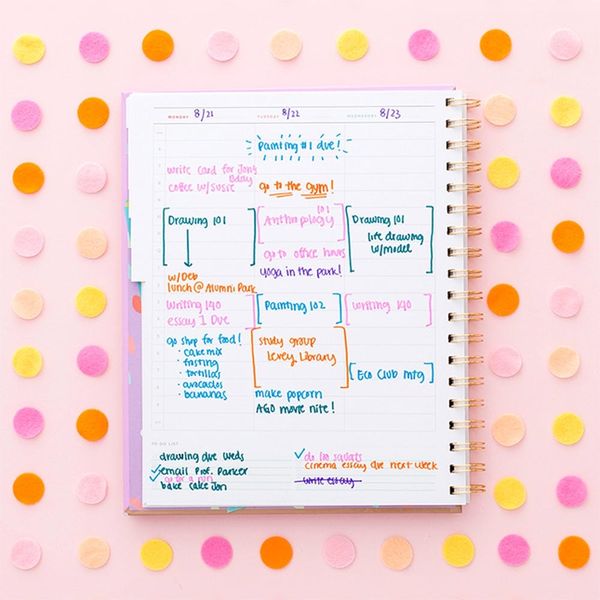 MONDAY 8/21
TUESDAY 8/22
WEDNESDAY 8/23
Painting #1 due!
write card for Jon's
Bday
coffee w/Susie
go to the gym!
Drawing 101
w/Deb
lunch @ Alumni Park
Writing 140
essay 1 Due
go shop for food!
• cake mix
• frsting
• tortillas
• avocados
• bananas
Anthropology
101
go to office hours
yoga in the park!
Painting 102
study group
Lexey Library
make popcorn
movie nite!
Drawing 101
life drawing
w/model
Writing 140
Eco Club mtg
TO DO LIST
drawing due weds
email Prof.
go for a run
bake cake Jon
do 100 squats
cinema essay due next week
write essay